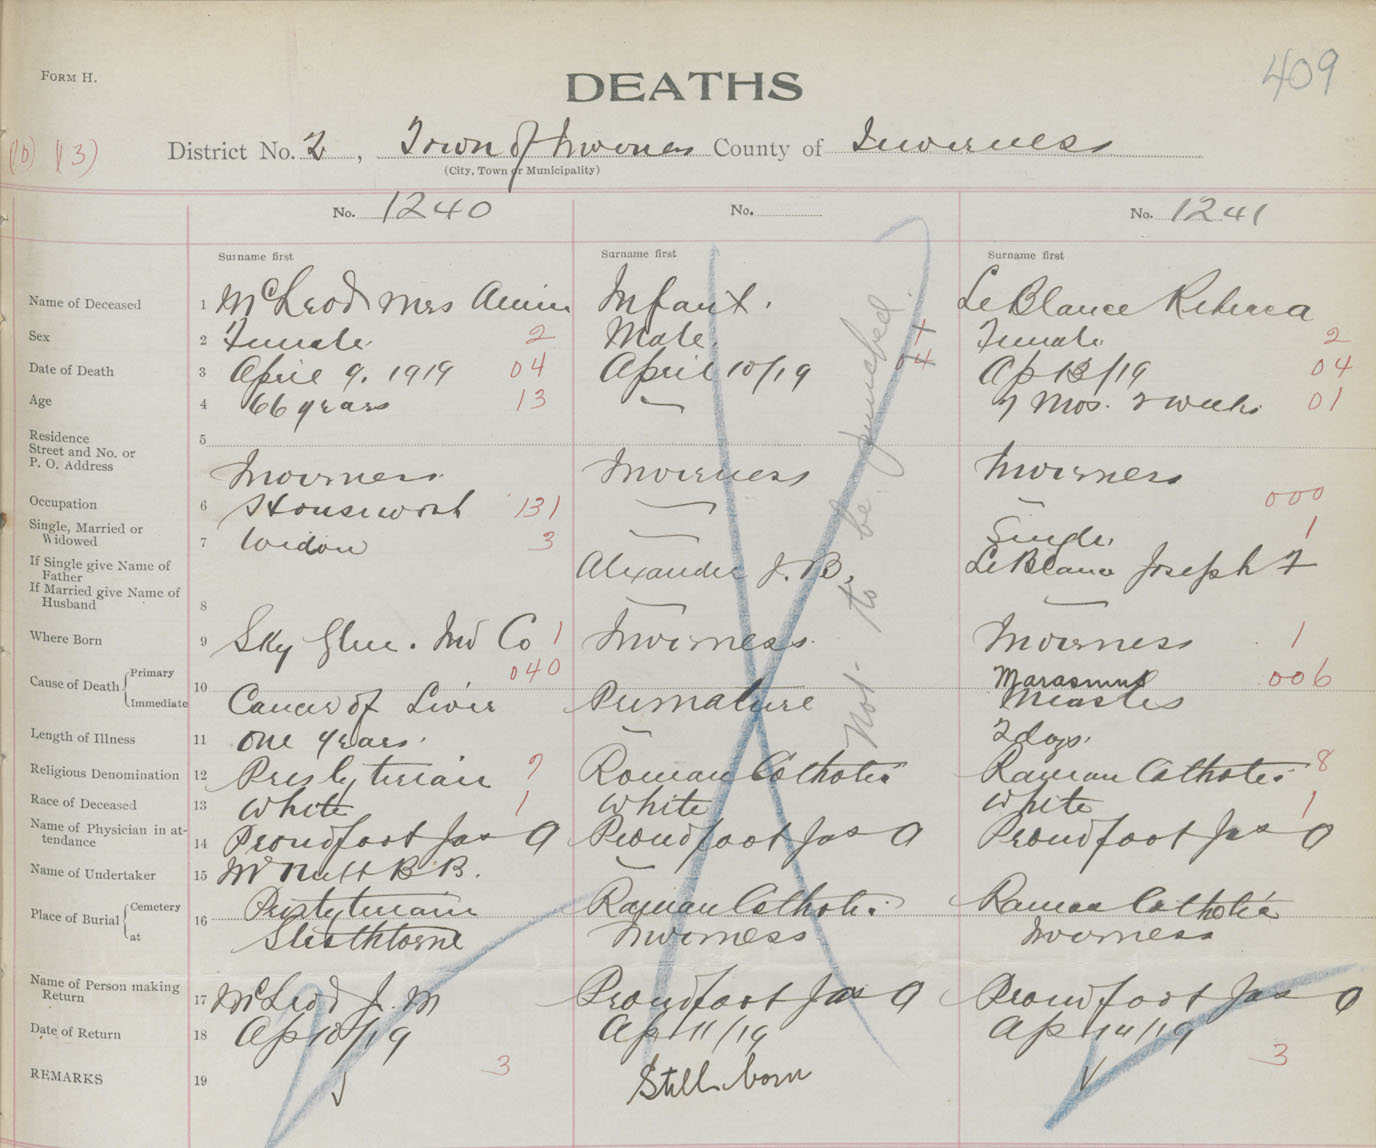 FORM H.
409
DEATHS
(10) (3)
District No. 2, Town of Inverness County of Inverness
(City, Town or Municipality)
No. 1240 No. No. 1241
Surname first Surname first Surname first
Name of Deceased 1 McLeod Mrs Infant. LeBlance Rebecca
Sex 2 Female 2 Male + Female 2
Date of Death 3 April 9. 1919 04 April 10/19 04 Ap 13/19 04
Age 4 66 years 13 — 7 Mos. 2 weeks 01
Residence
Street and No. or
P. O. Address 5 Inverness Inverness Inverness
Occupation 6 Housework 131 — — 000
Single, Married or
Widowed 7 Widow 3 — Single 1
If Single give Name of
Father Alexander J. B. LeBlanc Joseph F
If Married give Name of
Husband 8 — —
Where Born 9 Sky Glen. Inv Co 1 Inverness. Inverness 1
Cause of Death { Primary 040 Marasmus 006
10
Immediate Cancer of Liver Premature Measles
Length of Illness 11 one years. — 2 days.
Religious Denomination 12 Presbyterian 7 Roman Catholic Roman Catholic 8
Race of Deceased 13 White 1 White White 1
Name of Physician in at-
tendance 14 Proudfoot Jas A Proudfoot Jas A Proudfoot Jas A
Name of Undertaker 15 McNutt B B. —
Place of Burial { Cemetery 16 Presbyterian Roman Catholic Roman Catholic
at Strathlorne Inverness Inverness
Name of Person making
Return 17 McLeod J. M Proudfoot Jas A Proudfoot Jas A
Date of Return 18 Ap 10/19 Ap 11/19 Ap 14/19
REMARKS 19 3 Still born 3
Not to be punched.